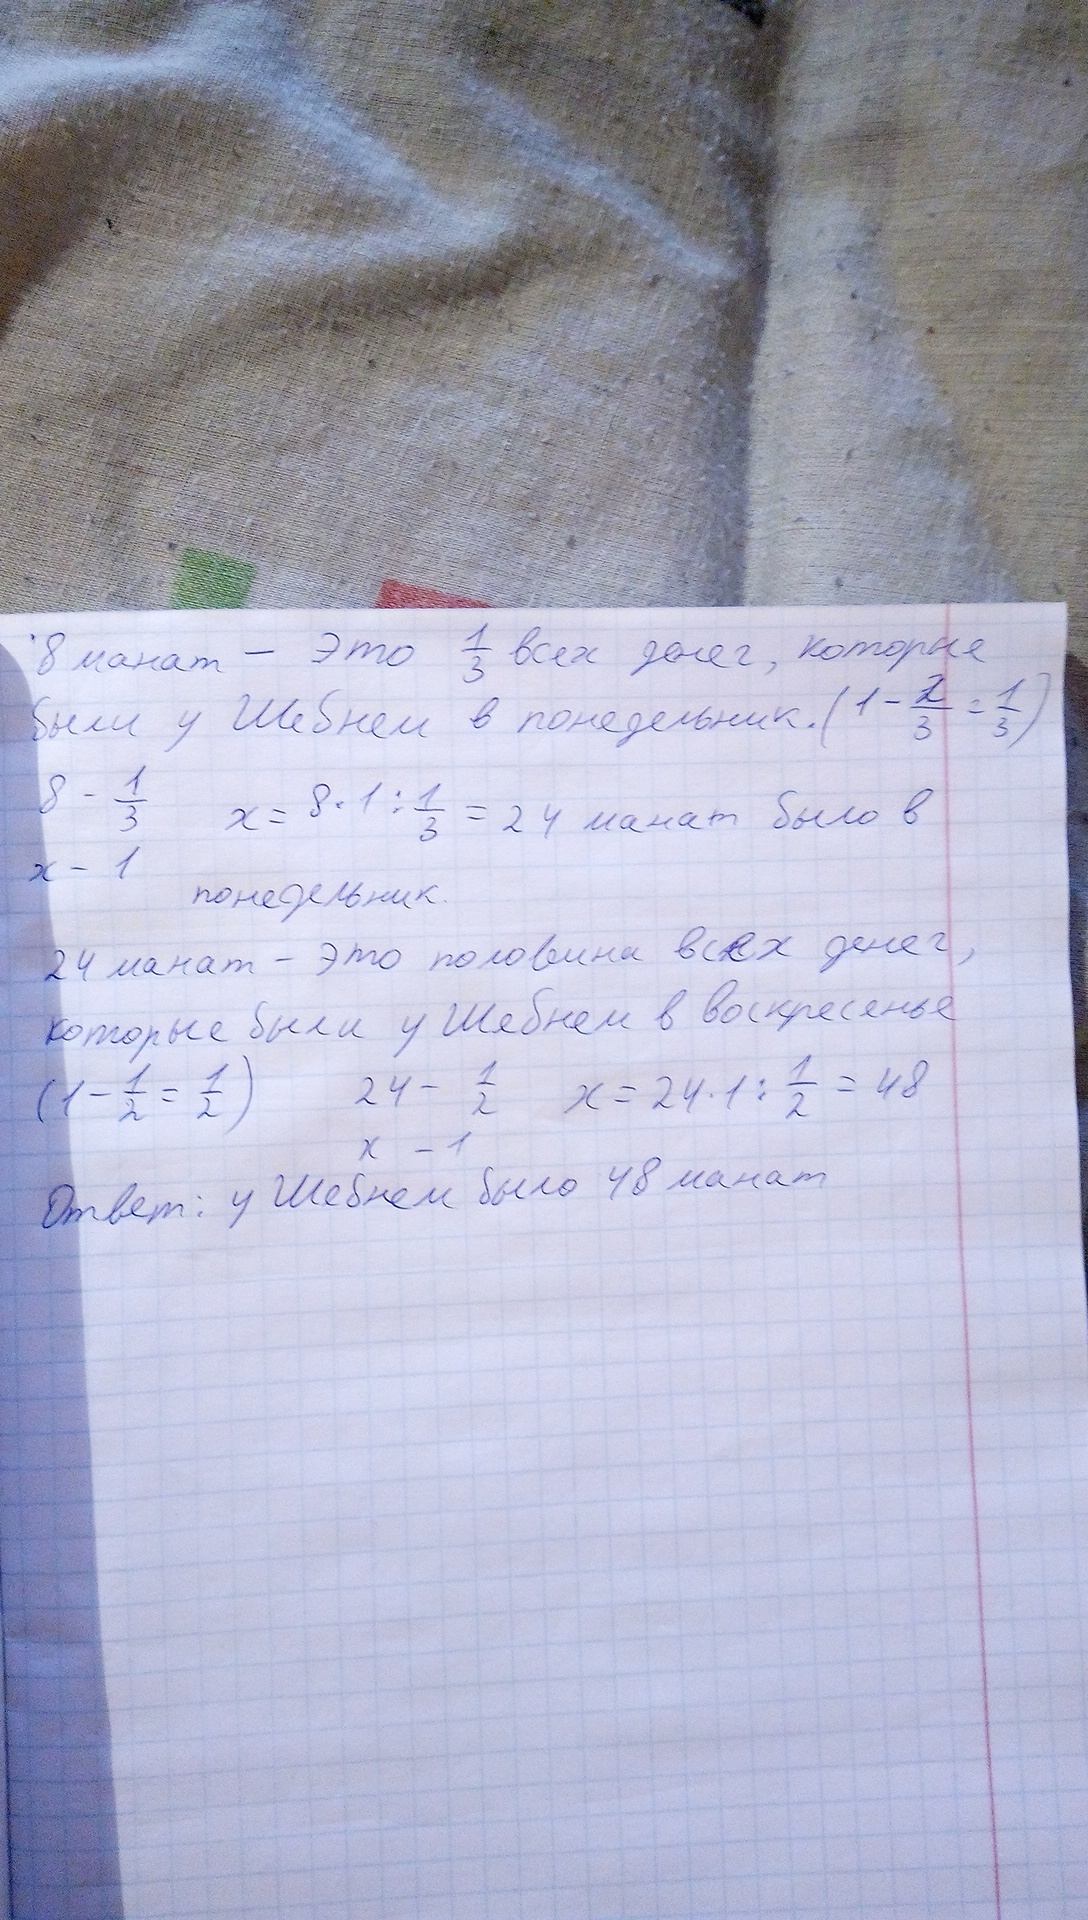 8 манат – Это 1/3 всех денег, которые
были у Шебнем в понедельник. (1 - 2/3 = 1/3)
8 - 1/3 x = 8 · 1 : 1/3 = 24 манат было в
x - 1 понедельник.
24 манат – это половина всех денег,
которые были у Шебнем в воскресенье
(1 - 1/2 = 1/2) 24 - 1/2 x = 24 · 1 : 1/2 = 48
x - 1
Ответ: у Шебнем было 48 манат